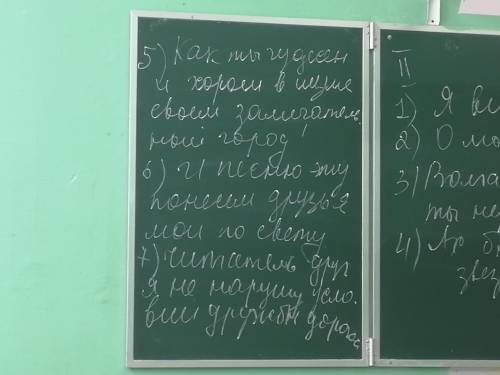 5) Как ты чудесен
и хорош в шуме
своем замечатель
ный город!
6) И песню эту
понесем друзья
мои по свету
7) Читатель друг
я не нарушу усло.
вий дружбы дорога
II
1) Я вс
2) О мо
3) Волга
ты не
4) Ар бы
звез